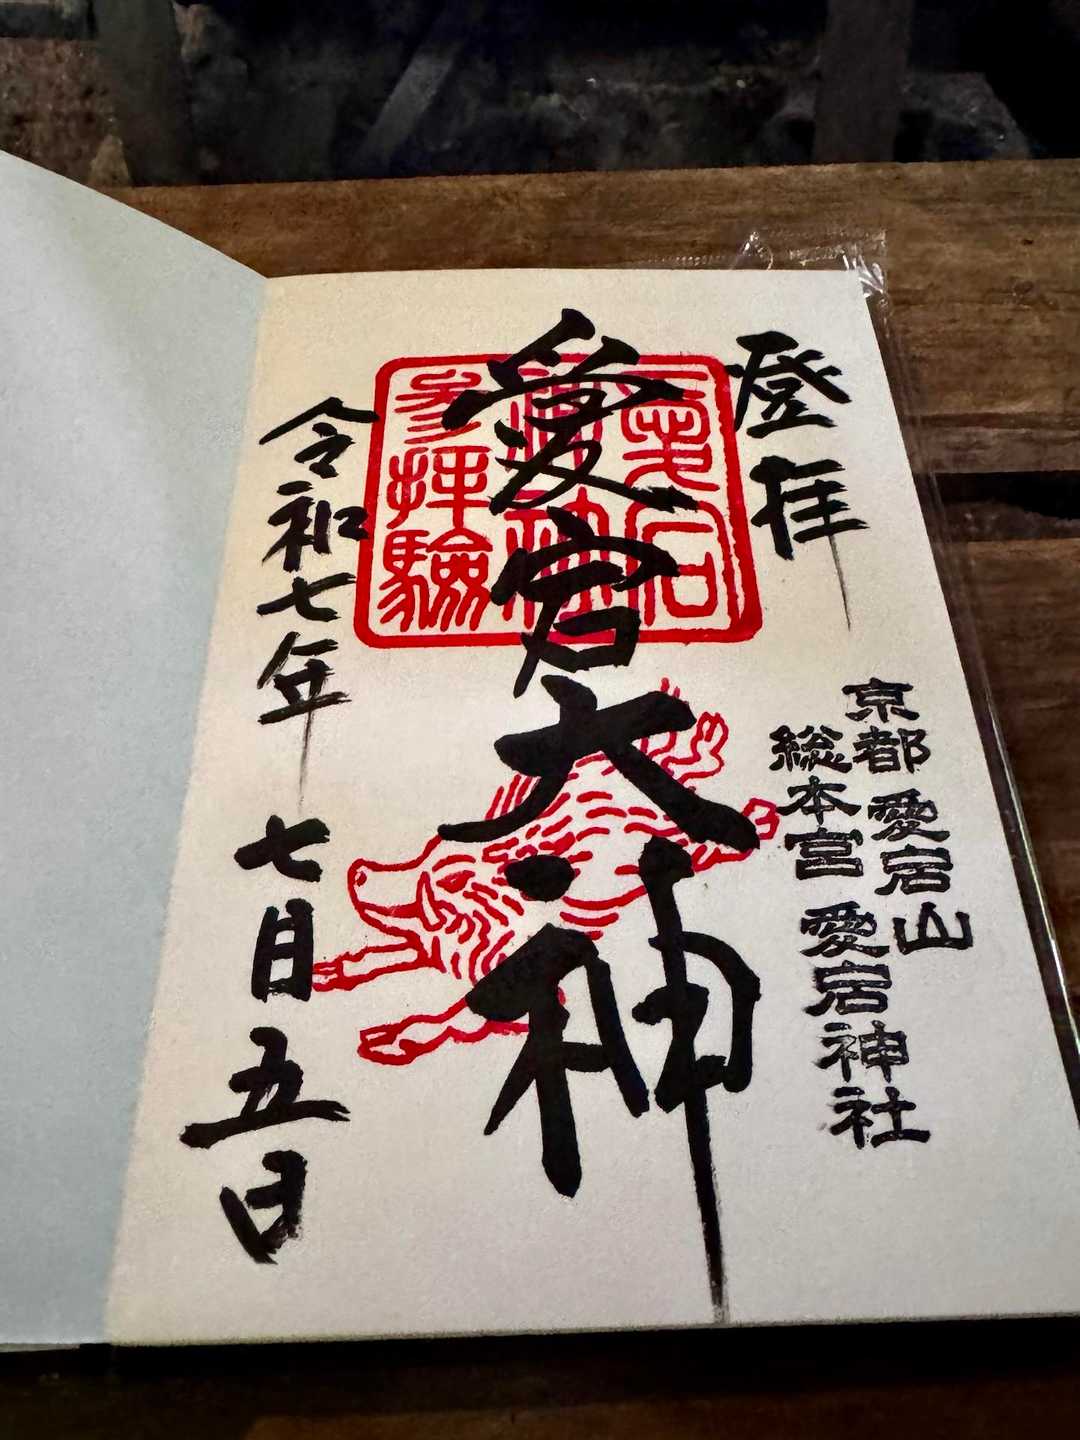 登拝
京都愛宕山
総本宮 愛宕神社
愛宕大神
參拝驗
令和七年 七月五日